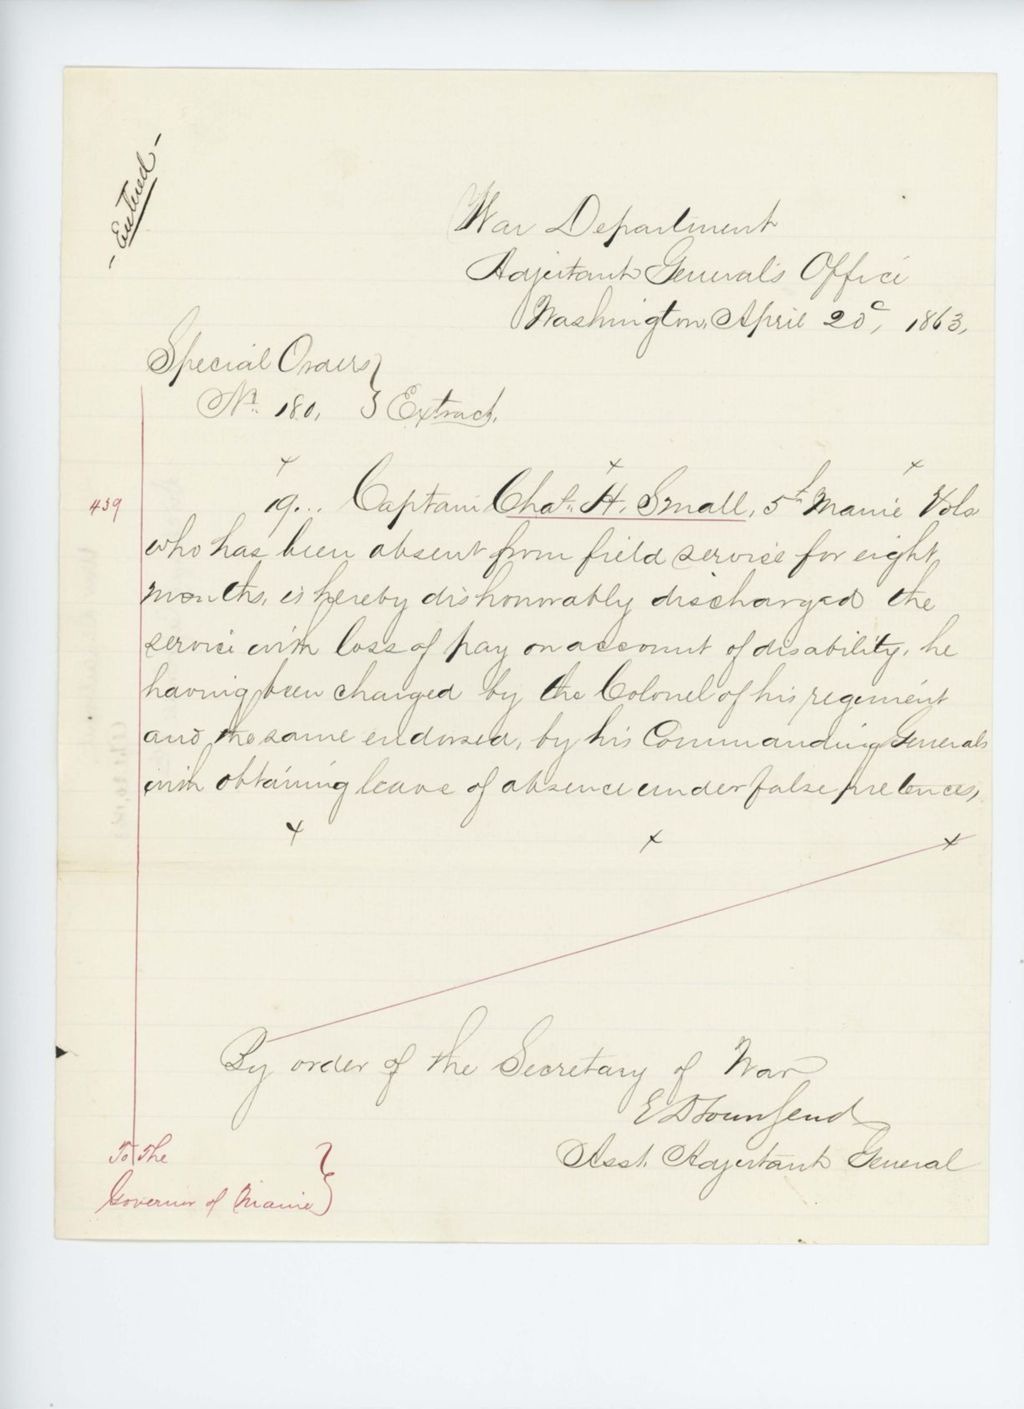 - Entered -
War Department
Adjutant General's Office
Washington, April 20", 1863,
Special Orders }
No. 180, } Extract.
x x x
439
19... Captain Chas. H. Small, 5th Maine Vols
who has been absent from field service for eight
months, is hereby dishonorably discharged the
service with loss of pay on account of disability, he
having been charged by the Colonel of his regiment
and the same endorsed, by his Commanding Generals
with obtaining leave of absence under false pretences,
x x x
By order of the Secretary of War
E D Townsend
Asst. Adjutant General
To the }
Governor of Maine }